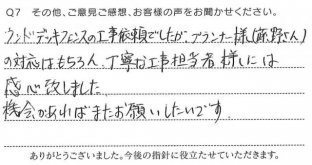 Q7 その他、ご意見ご感想、お客様の声をお聞かせください。
ウッドデッキフェンスの工事依頼でしたが、プランナー様(萩野さん)
の対応はもちろん、丁寧な工事担当者様には
感心致しました。
機会があればまたお願いしたいです。
ありがとうございました。今後の指針に役立たせていただきます。